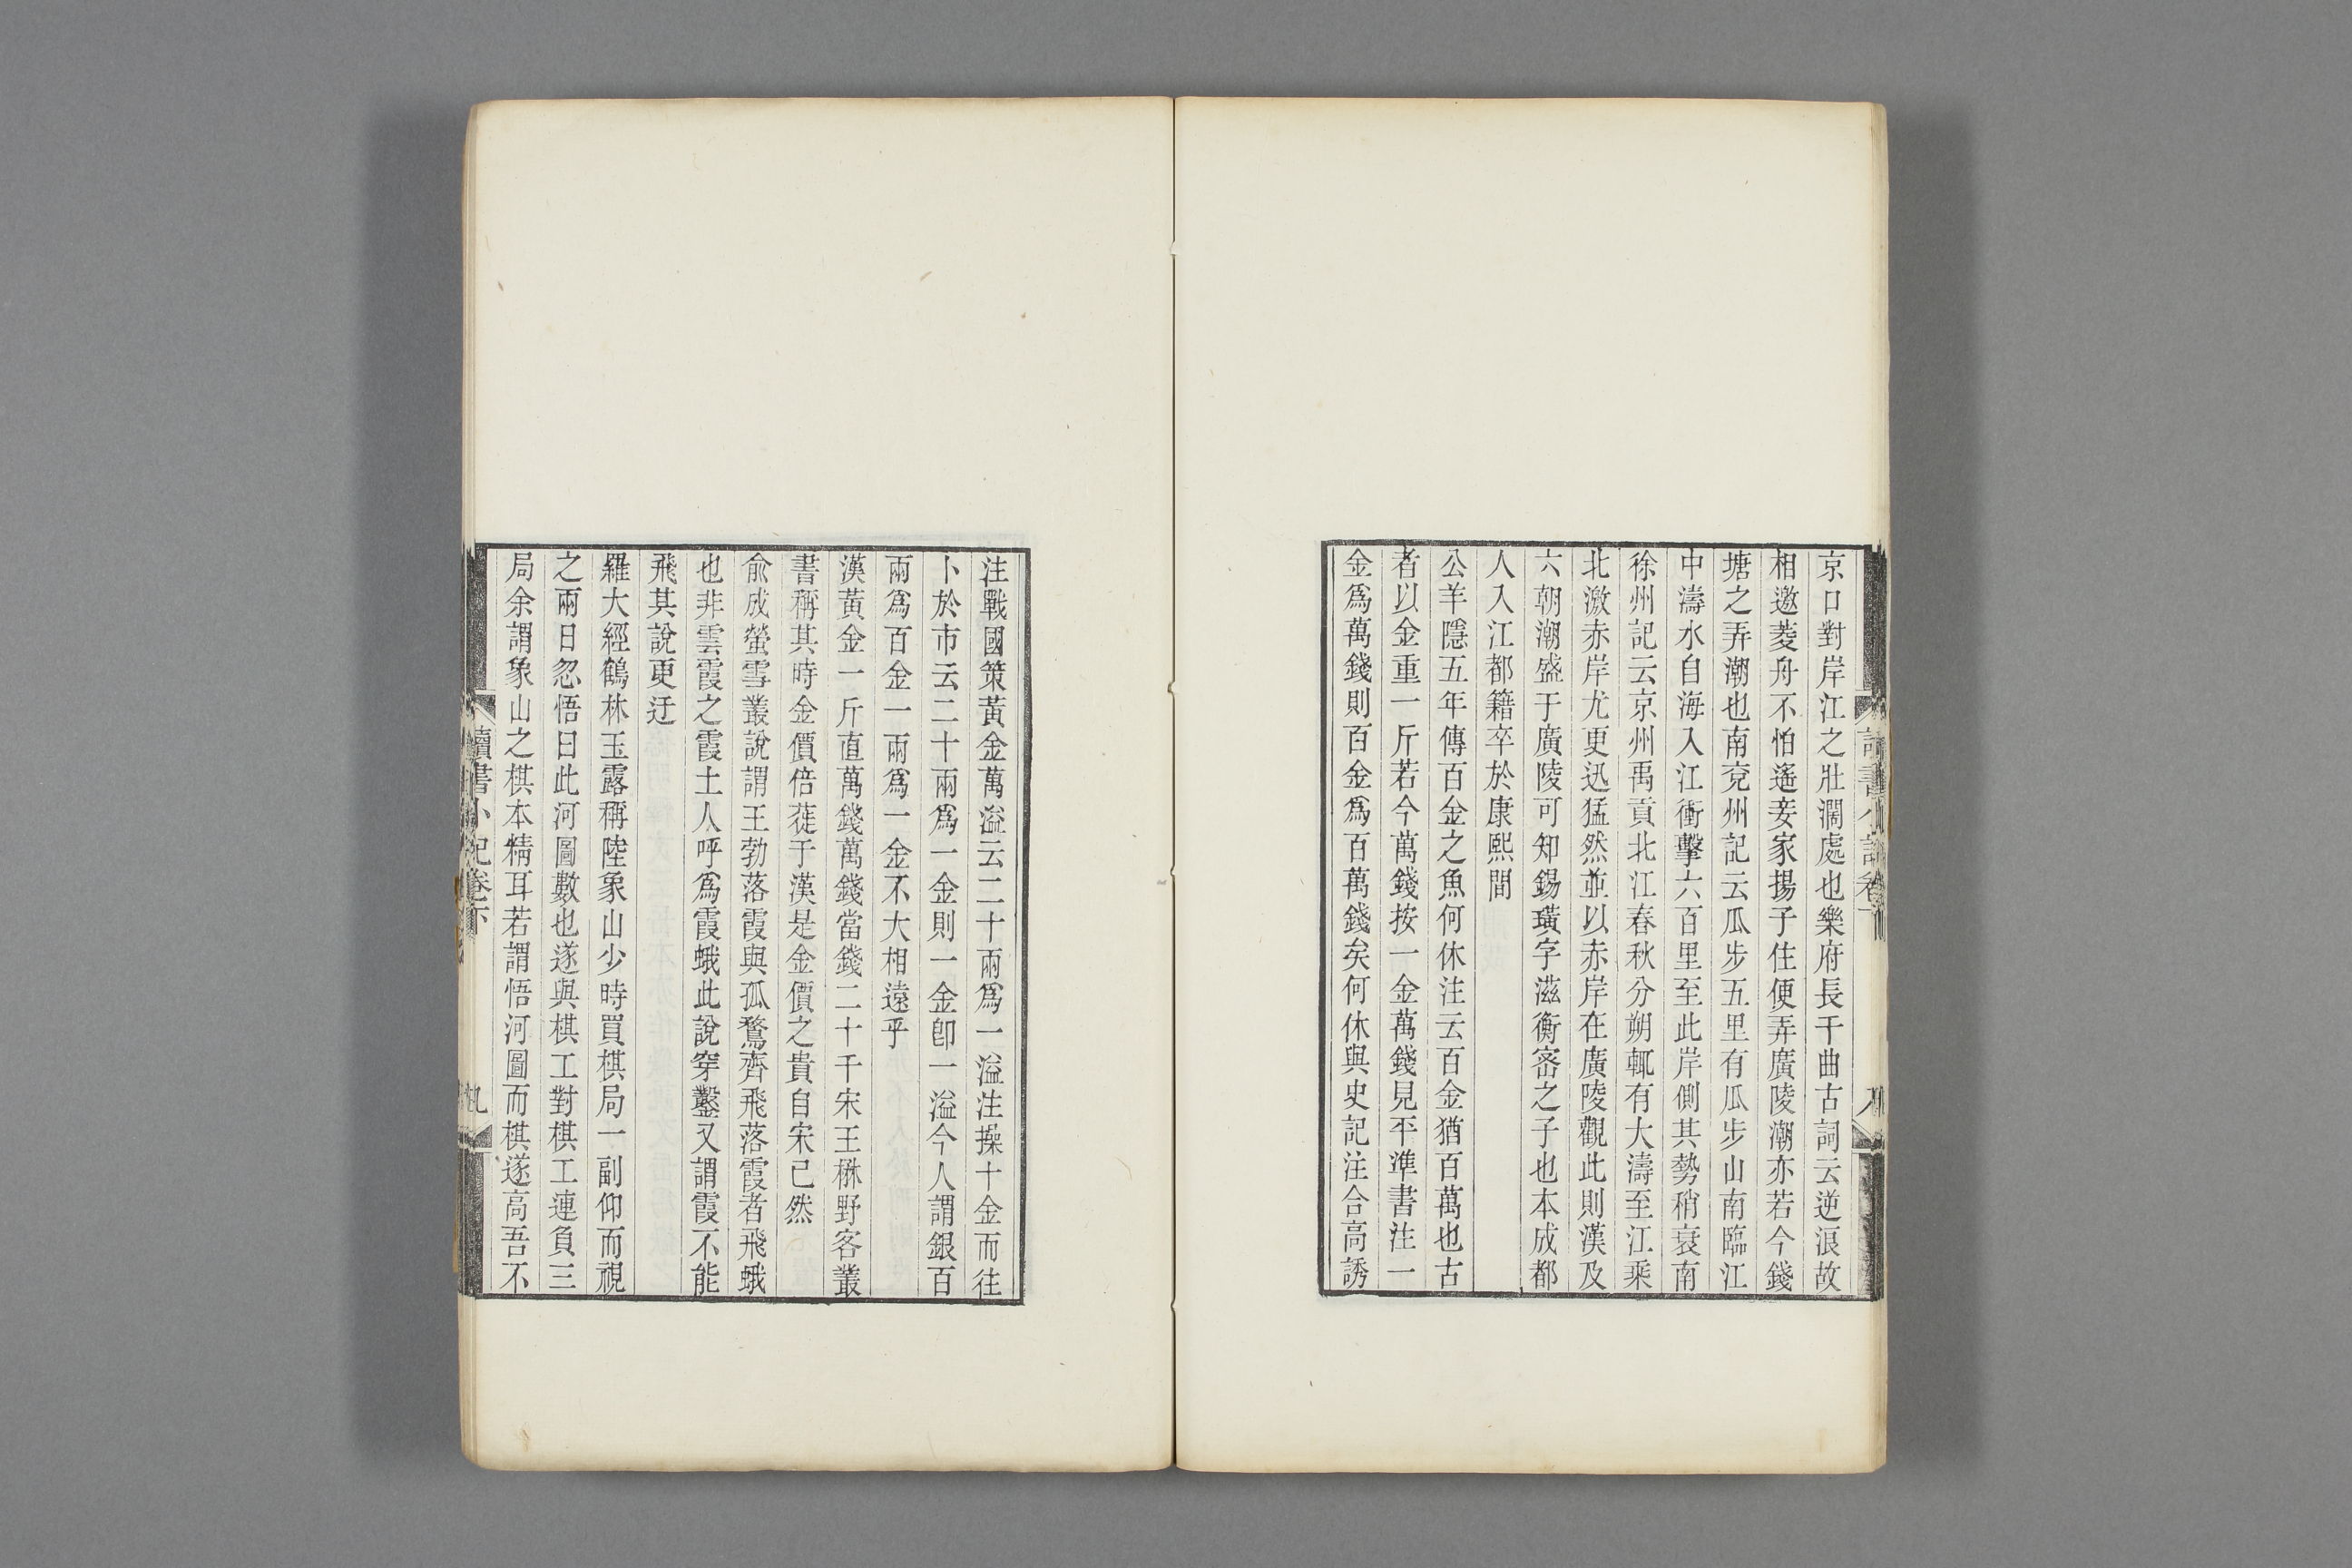 京口對岸江之壯濶處也樂府長干曲古詞云逆浪故
相邀菱舟不怕遙妾家揚子住便弄廣陵潮亦若今錢
塘之弄潮也南兗州記云瓜步五里有瓜步山南臨江
中濤水自海入江衝擊六百里至此岸側其勢稍衰南
徐州記云京州禹貢北江春秋分朔輒有大濤至江乘
北激赤岸尤更迅猛然並以赤岸在廣陵觀此則漢及
六朝潮盛于廣陵可知錫璜字滋衡宻之子也本成都
人入江都籍卒於康熙間
公羊隱五年傳百金之魚何休注云百金猶百萬也古
者以金重一斤若今萬錢按一金萬錢見平準書注一
金爲萬錢則百金爲百萬錢矣何休與史記注合高誘
注戰國策黃金萬溢云二十兩爲一溢注操十金而往
卜於市云二十兩爲一金則一金卽一溢今人謂銀百
兩爲百金一兩爲一金不大相遠乎
漢黃金一斤直萬錢萬錢當錢二十千宋王楙野客叢
書稱其時金價倍蓰于漢是金價之貴自宋已然
俞成螢雪叢說謂王勃落霞與孤鶩齊飛落霞者飛蛾
也非雲霞之霞土人呼爲霞蛾此說穿鑿又謂霞不能
飛其說更迂
羅大經鶴林玉露稱陸象山少時買棋局一副仰而視
之兩日忽悟曰此河圖數也遂與棋工對棋工連負三
局余謂象山之棋本精耳若謂悟河圖而棋遂高吾不
讀書小記卷下
九